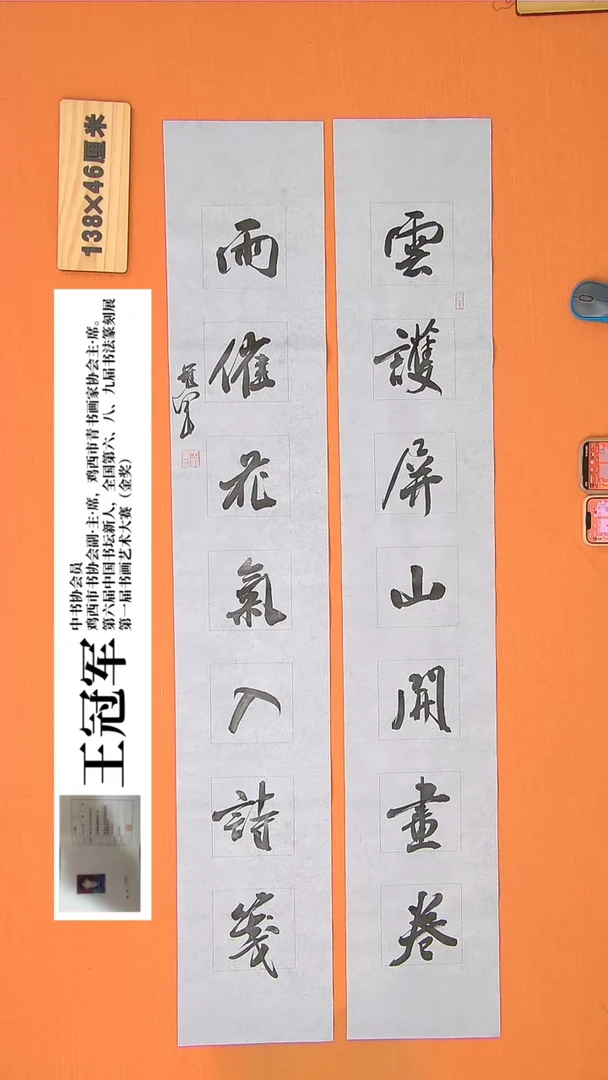 雲護屏山開畫卷
雨催花氣入詩箋
冠軍
138×46厘米
王冠军
中书协会员
鸡西市书协会副·主·席，鸡西市青书画家协会主·席。
第六届中国书坛新人，全国第六、八、九届书法篆刻展
第一届书画艺术大赛（金奖）